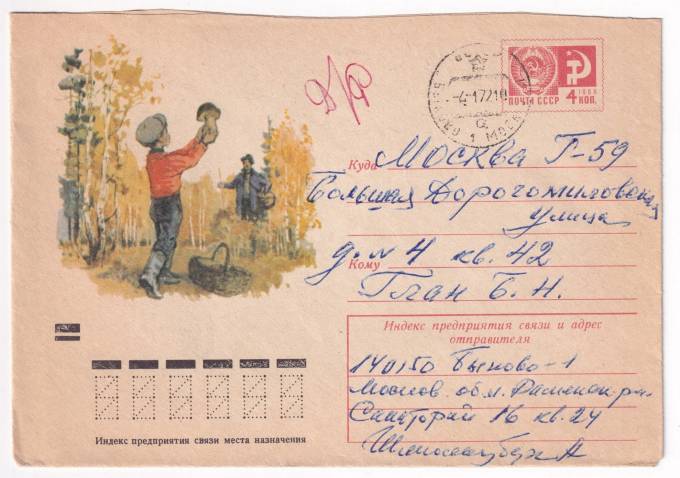 Д/Ф
ПОЧТА СССР 4 КОП.
1966
-4-1 72 10
БЫКОВО 1 МОСК
Куда Москва Г-59
Большая Дорогомиловская
улица
д. № 4 кв. 42
Кому
Глан Б. Н.
Индекс предприятия связи и адрес
отправителя
140150 Быково-1
Москов. обл. Раменск. р-н.
Санаторий 16 кв. 24
А
Индекс предприятия связи места назначения